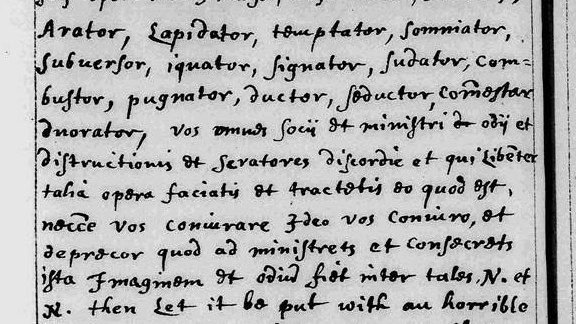 Arator, Lapidator, temptator, somniator,
subversor, iquator, signator, sudator, Com=
bustor, pugnator, ductor, seductor, Comestar
duorator, vos omnes socii et ministri de odij et
distructionis et seratores discordie et qui libenter
talia opera faciatis et tractetis eo quod est,
necce vos coniurare Ideo vos Coniuro, et
deprecor quod ad ministrets et Consecrets
ista Imaginem et odiu fiet inter tales N. et
N. then Let it be put with an horrible